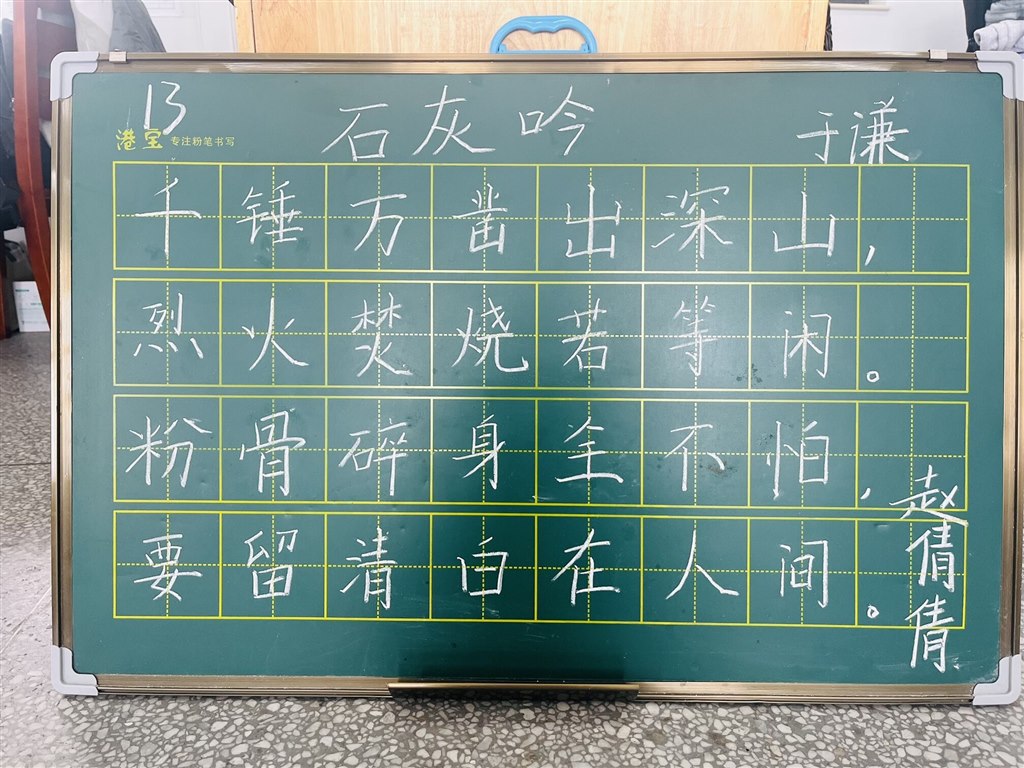 13
港宝 专注粉笔书写
石灰吟 于谦
千锤万凿出深山,
烈火焚烧若等闲。
粉骨碎身全不怕,
要留清白在人间。
赵倩倩